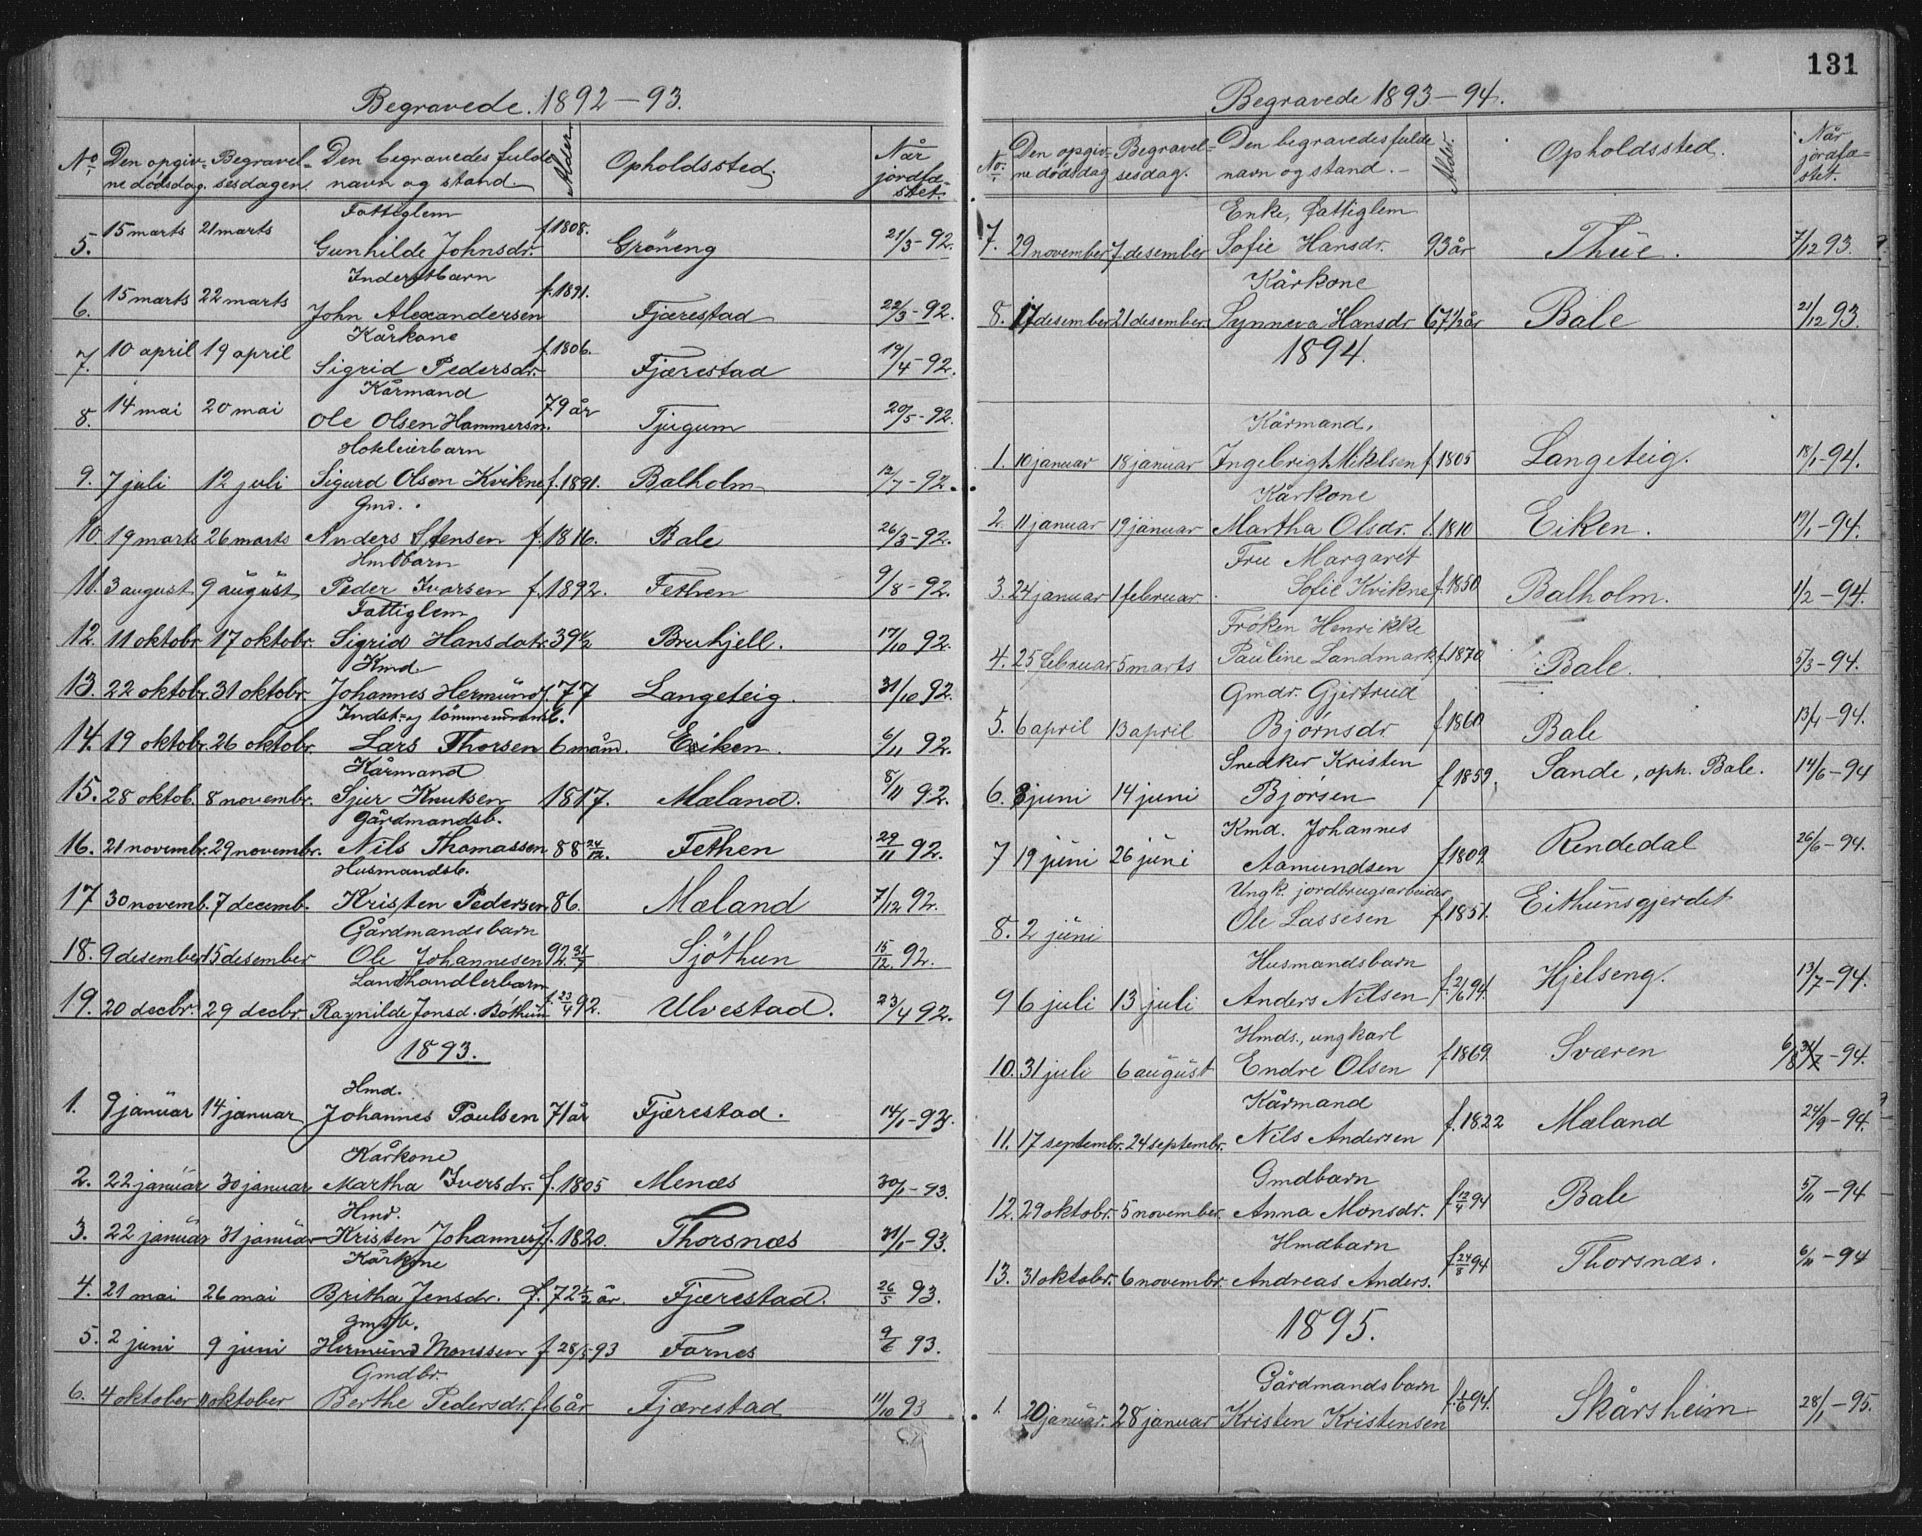 131
Begravede 1892-93.
No. Den opgiv- Begravel- Den begravedes fulde Alder. Opholdssted. Når
ne dödsdag. sesdagen. navn og stand. jordfæ-
stet.
Fattiglem
5. 15 marts 21 marts Gunhilde Johnsdr. f. 1808. Gröneng 21/3-92.
Inderstbarn
6. 15 marts 22 marts John Alexandersen f. 1891. Fjærestad 22/3-92.
Kårkone
7. 10 april 19 april Sigrid Pedersdr. f. 1806. Fjærestad 19/4-92.
Kårmand
8. 14 mai 20 mai Ole Olsen Hammersn. 79 år Tjugum 20/5-92.
Hotelierbarn
9. 7 juli 12 juli Sigurd Olsen Kvikne f. 1891. Balholm 12/7-92.
Gmd.
10. 19 marts 26 marts Anders Stensen f. 1816. Bale 26/3-92.
Hmdbarn
11. 3 august 9 august Peder Ivarsen f. 1892. Fethen 9/8-92.
Fattiglem
12. 11 oktobr 17 oktobr. Sigrid Hansdatr. 39 1/2 Bruhjell. 17/10 92.
Kmd.
13. 22 oktobr. 31 oktobr. Johannes Hermünd f. 77 Langeteig. 31/10 92.
Indst. og tömmermansb.
14. 19 oktobr. 26 oktobr. Lars Thorsen 6 månd. Eiken. 6/11 92.
Kårmand
15. 28 oktob. 8 novembr. Sjur Knutsen 1817. Mæland. 8/11 92.
Gårdmandsb.
16. 21 novembr. 29 novembr. Nils Thomassen 88 24/12. Fethen 29/11 92.
Husmandsb.
17 30 novemb. 7 decemb. Kristen Pedersen 86. Mæland 7/12 92.
Gårdmandsbarn
18. 9 desember 15 desember Ole Johannesen 92 31/7 Sjöthun 15/12 92.
Landhandlerbarn
19. 20 decbr. 29 decbr. Ragnilde Jonsd. Böthün f. 23/4 92. Ulvestad. 23/4 92.
1893.
Hmd.
1. 9 januar 14 januar Johannes Poulsen 71 år Fjærestad. 14/1-93.
Kårkone
2. 22 januar 30 januar Martha Iversdr. f. 1805 Menæs 30/1-93.
Hmd.
3. 22 januar 31 januar Kristen Johannes f. 1820. Thorsnæs 31/1-93.
Kårkone
4. 21 mai 26 mai Britha Jensdr. f. 72 1/2 år. Fjærestad. 26/5 93.
Gmdb.
5. 2 juni 9 juni Hermund Monssen f 28/5-93 Farnes 9/6 93.
Gmdbr.
6. 4 oktober 11 oktober Berthe Pedersdr. f. 6 år Fjærestad 11/10 93
Begravede 1893-94.
No. Den opgiv- Begravel- Den begravedes fulde Alder. Opholdssted. Når
ne dödsdag sesdag. navn og stand. jordfæ-
stet.
Enke, fattiglem
7. 29 november 7 desember Sofie Hansdr. 93 år Thüe. 7/12 93.
Kårkone
8. 17 desember 21 desember. Synneva Hansdr 67 1/2 år Bale 21/12 93.
1894.
Kårmand,
1. 10 januar 18 januar Ingebrigt Mikelsen f. 1805 Langeteig. 18/1-94.
Kårkone
2. 11 januar 19 januar Martha Olsdr. f. 1810 Eiken. 19/1-94.
Fru Margaret
3. 24 januar 1 februar Sofie Kvikne f. 1850 Balholm. 1/2-94.
Fröken Henrikke
4. 25 februar 5 marts Pauline Landmark f. 1870 Bale. 5/3-94.
Gmdr. Gjertrud
5. 6 april 13 april Bjørnsdr f. 1860 Bale 13/4-94.
Snedker Kristen
6. 8 juni 14 juni Bjørsen f 1859. Sande, oph. Bale. 14/6-94
Kmd. Johannes
7 19 juni 26 juni Aamundsen f. 1809. Rendedal 26/6-94.
Ungk. jordbrugsarbeider
8. 2 juni Ole Lassesen f. 1851. Eithunsgjerdet
Husmandsbarn
9 6 juli 13 juli Anders Nilsen f. 2/6 94. Hjelseng. 13/7-94.
Hmds., ungkarl
10. 31 juli 6 august Endre Olsen f. 1869. Sværen 6/8 31/7-94.
Kårmand
11. 17 septembr. 24 septembr. Nils Andersen f. 1822 Mæland 24/9-94.
Gmdbarn
12. 29 oktobr. 5 november. Anna Monsdr. f 12/4 94 Bale 5/11-94
Hmdbarn
13. 31 oktobr. 6 novembr. Andreas Anders. f 24/8 94 Thorsnæs. 6/11-94
1895.
Gårdmandsbarn
1. 20 januar. 28 januar Kristen Kristensen f. 1/6 94. Skårsheim 28/1-95.